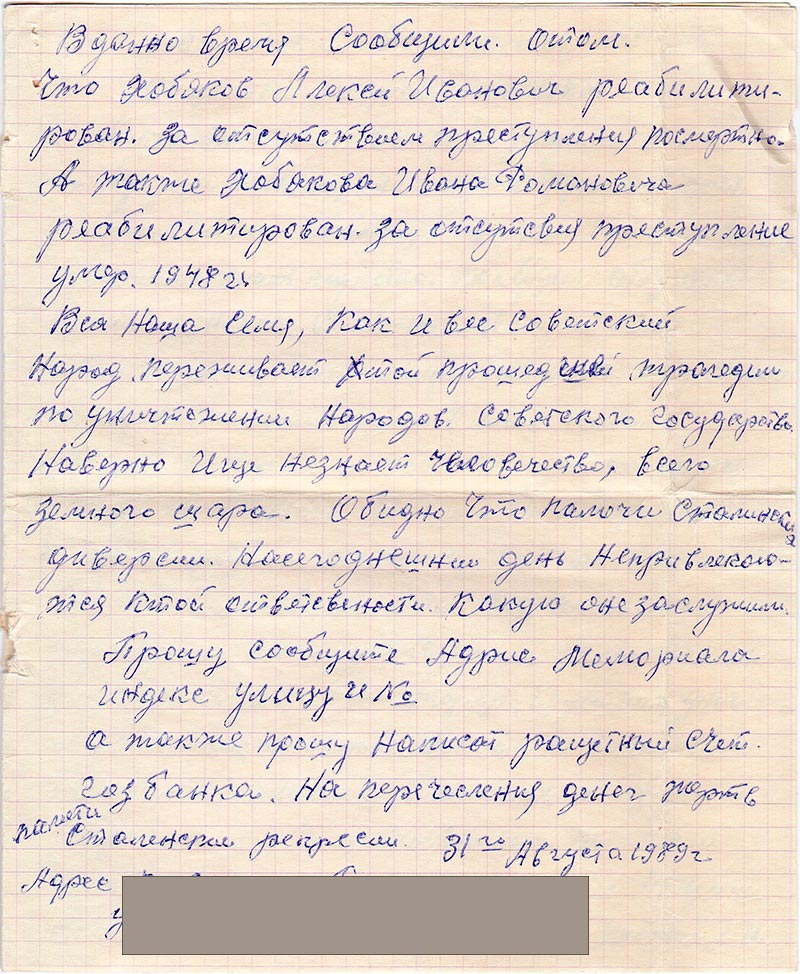 В данно время Сообщили. Отом.
Что Хобяков Алексей Иванович реабилити-
рован. За отсутствием преступления посмертно.
А также Хобякова Ивана Романовича
реабилитирован. за отсутсвия преступление
умер. 1948 г.
Вся Наша Семя, Как и все Советский
Народ, переживает этой трагедии
по уничтожении Народов. Советского Государства.
Наверно Ище незнает Человечество, всего
земного шара. Обидно Что палочи Сталинская
диверсии. Насегоднешнии день Непривлекаю-
тся Ктой ответсвености. Какую оне заслужили.
Прошу сообщите Адрис Мемориала
индекс улицу и №
а также прошу Написат ращетный Счет.
Гозбанка. На перечесления денег жертв
памяти
Сталенскии репресии. 31 го Августа 1989 г
Адрес